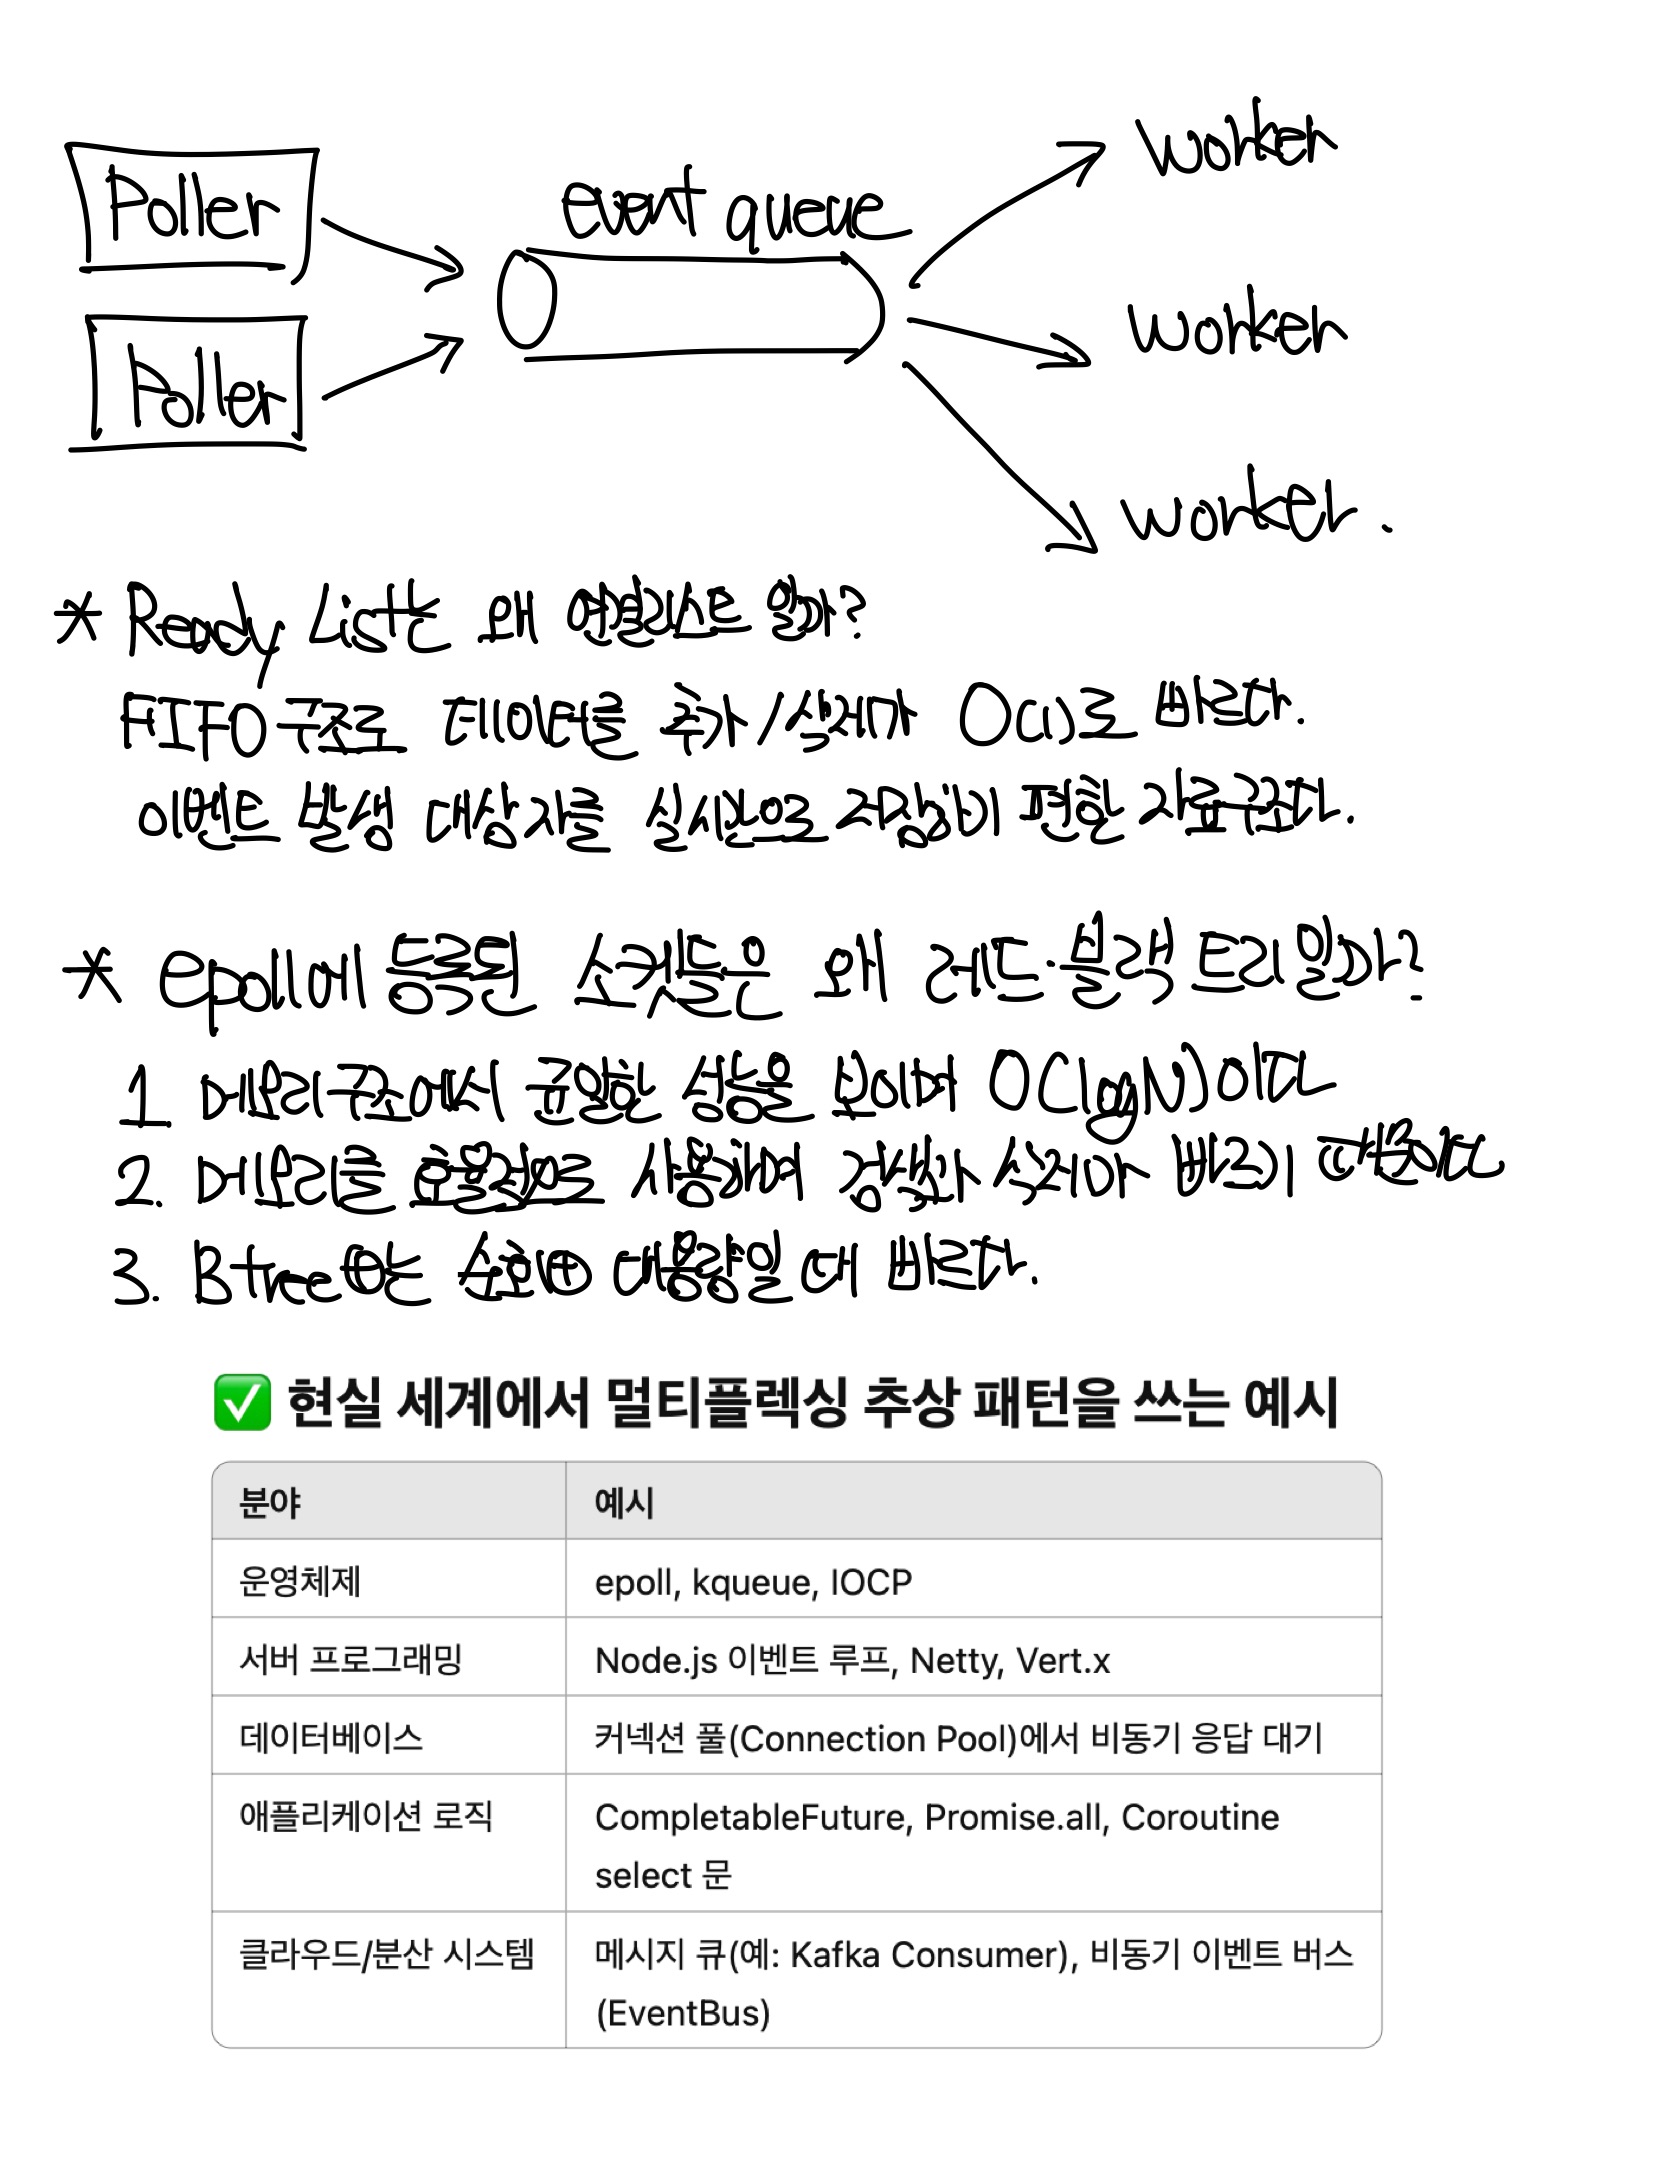 Poller
Poller
event queue
worker
worker
worker.
* Ready List는 왜 연결리스트 일까?
FIFO 구조로 데이터를 추가/삭제가 O(1)로 빠르다.
이벤트 발생 대상자를 실시간으로 저장하기 편한 자료구조다.
* epoll에 등록된 소켓들은 왜 레드·블랙 트리일까?
1 메모리구조에서 균일한 성능을 보이며 O(logN)이다
2. 메모리를 효율적으로 사용하며 검색과 삭제가 빠르기 때문이다
3. B tree 대용량일 때 빠르다.
✅ 현실 세계에서 멀티플렉싱 추상 패턴을 쓰는 예시
분야 예시
운영체제 epoll, kqueue, IOCP
서버 프로그래밍 Node.js 이벤트 루프, Netty, Vert.x
데이터베이스 커넥션 풀(Connection Pool)에서 비동기 응답 대기
애플리케이션 로직 CompletableFuture, Promise.all, Coroutine
select 문
클라우드/분산 시스템 메시지 큐(예: Kafka Consumer), 비동기 이벤트 버스
(EventBus)